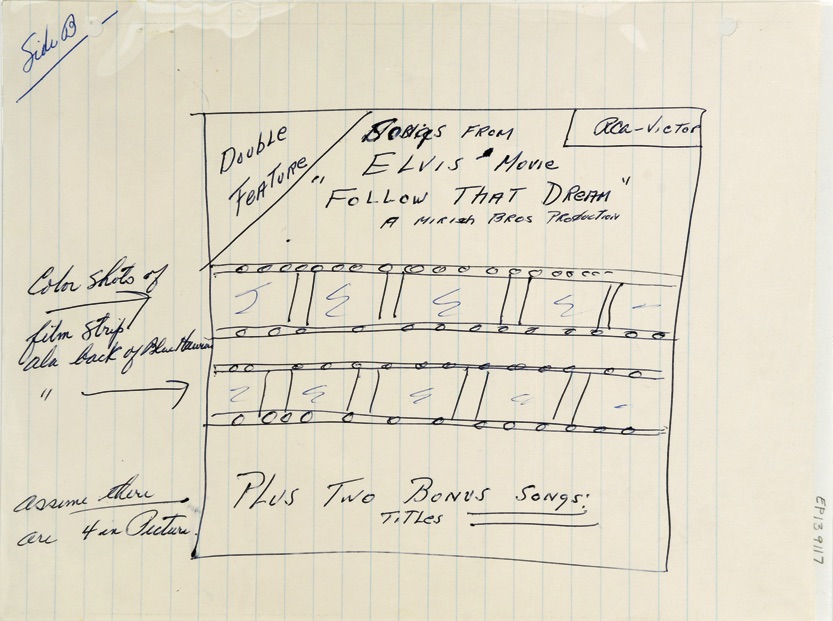 Side B
Double
Feature
Songs from
Elvis' Movie
"Follow That Dream"
A Mirish Bros Production
RCA-Victor
Color shots of
film strip
ala back of Blue Hawaii
"
Plus Two Bonus Songs:
Titles
assume there
are 4 in Picture.
EP139117